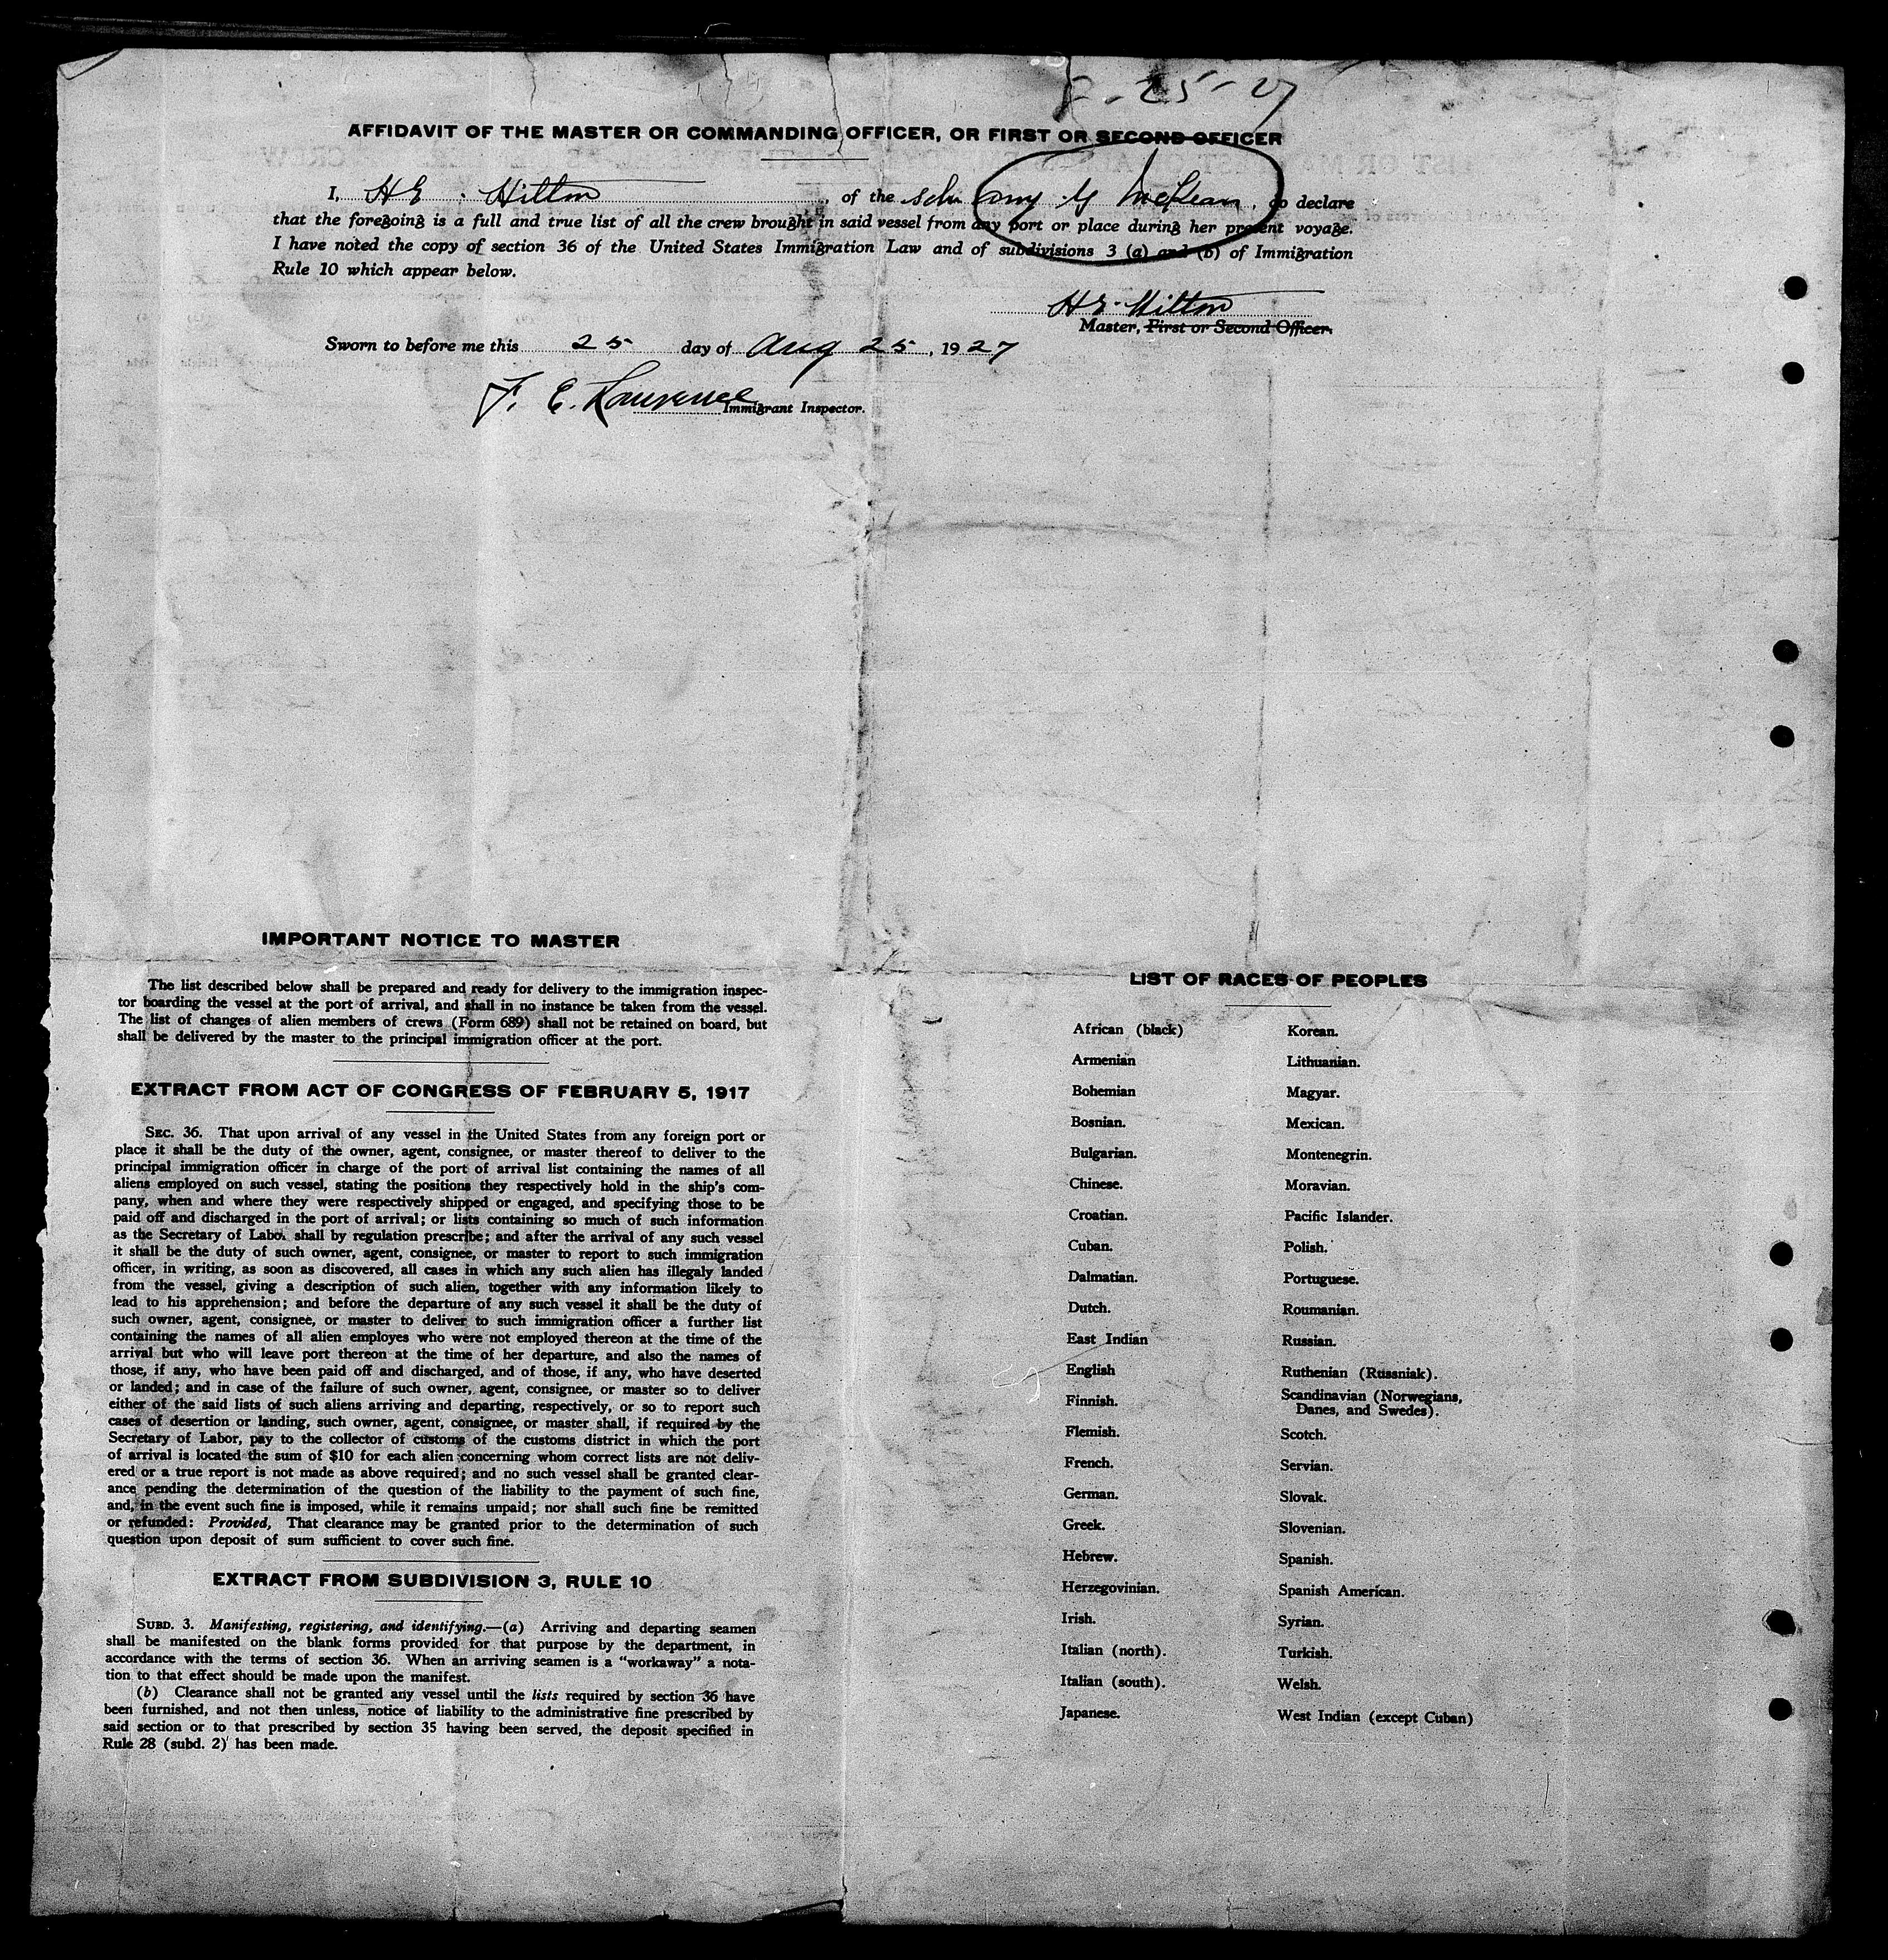 8-25-27
AFFIDAVIT OF THE MASTER OR COMMANDING OFFICER, OR FIRST OR SECOND OFFICER
I, H E. Hilton, of the Schr G McKean, do declare
that the foregoing is a full and true list of all the crew brought in said vessel from any port or place during her present voyage.
I have noted the copy of section 36 of the United States Immigration Law and of subdivisions 3 (a) and (b) of Immigration
Rule 10 which appear below.
H E. Hilton
Master, First or Second Officer.
Sworn to before me this 25 day of Aug 25, 1927
F. E. Lawrence Immigrant Inspector.
IMPORTANT NOTICE TO MASTER
The list described below shall be prepared and ready for delivery to the immigration inspec-
tor boarding the vessel at the port of arrival, and shall in no instance be taken from the vessel.
The list of changes of alien members of crews (Form 689) shall not be retained on board, but
shall be delivered by the master to the principal immigration officer at the port.
EXTRACT FROM ACT OF CONGRESS OF FEBRUARY 5, 1917
SEC. 36. That upon arrival of any vessel in the United States from any foreign port or
place it shall be the duty of the owner, agent, consignee, or master thereof to deliver to the
principal immigration officer in charge of the port of arrival list containing the names of all
aliens employed on such vessel, stating the positions they respectively hold in the ship's com-
pany, when and where they were respectively shipped or engaged, and specifying those to be
paid off and discharged in the port of arrival; or lists containing so much of such information
as the Secretary of Labor shall by regulation prescribe; and after the arrival of any such vessel
it shall be the duty of such owner, agent, consignee, or master to report to such immigration
officer, in writing, as soon as discovered, all cases in which any such alien has illegaly landed
from the vessel, giving a description of such alien, together with any information likely to
lead to his apprehension; and before the departure of any such vessel it shall be the duty of
such owner, agent, consignee, or master to deliver to such immigration officer a further list
containing the names of all alien employes who were not employed thereon at the time of the
arrival but who will leave port thereon at the time of her departure, and also the names of
those, if any, who have been paid off and discharged, and of those, if any, who have deserted
or landed; and in case of the failure of such owner, agent, consignee, or master so to deliver
either of the said lists of such aliens arriving and departing, respectively, or so to report such
cases of desertion or landing, such owner, agent, consignee, or master shall, if required by the
Secretary of Labor, pay to the collector of customs of the customs district in which the port
of arrival is located the sum of $10 for each alien concerning whom correct lists are not deliv-
ered or a true report is not made as above required; and no such vessel shall be granted clear-
ance pending the determination of the question of the liability to the payment of such fine,
and, in the event such fine is imposed, while it remains unpaid; nor shall such fine be remitted
or refunded: Provided, That clearance may be granted prior to the determination of such
question upon deposit of sum sufficient to cover such fine.
EXTRACT FROM SUBDIVISION 3, RULE 10
SUBD. 3. Manifesting, registering, and identifying.—(a) Arriving and departing seamen
shall be manifested on the blank forms provided for that purpose by the department, in
accordance with the terms of section 36. When an arriving seamen is a "workaway" a nota-
tion to that effect should be made upon the manifest.
(b) Clearance shall not be granted any vessel until the lists required by section 36 have
been furnished, and not then unless, notice of liability to the administrative fine prescribed by
said section or to that prescribed by section 35 having been served, the deposit specified in
Rule 28 (subd. 2) has been made.
LIST OF RACES OF PEOPLES
African (black)
Armenian
Bohemian
Bosnian.
Bulgarian.
Chinese.
Croatian.
Cuban.
Dalmatian.
Dutch.
East Indian
English
Finnish.
Flemish.
French.
German.
Greek.
Hebrew.
Herzegovinian.
Irish.
Italian (north).
Italian (south).
Japanese.
Korean.
Lithuanian.
Magyar.
Mexican.
Montenegrin.
Moravian.
Pacific Islander.
Polish.
Portuguese.
Roumanian.
Russian.
Ruthenian (Russniak).
Scandinavian (Norwegians,
Danes, and Swedes).
Scotch.
Servian.
Slovak.
Slovenian.
Spanish.
Spanish American.
Syrian.
Turkish.
Welsh.
West Indian (except Cuban)